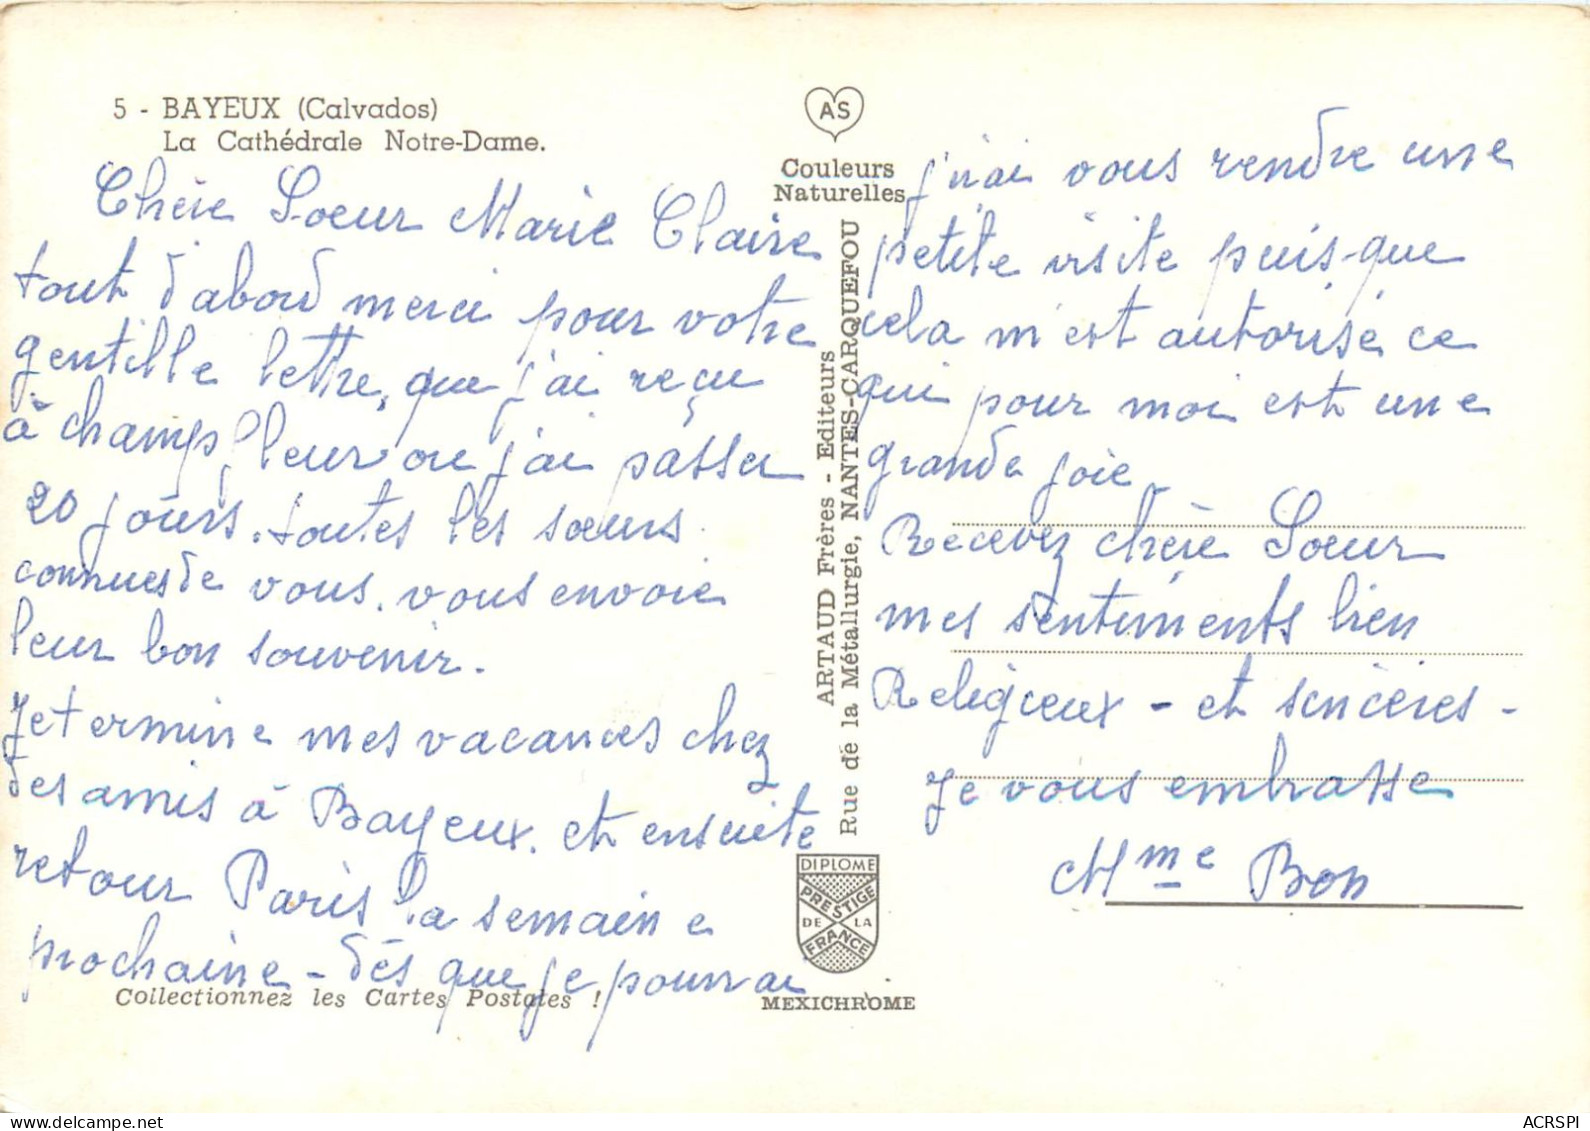 5 - BAYEUX (Calvados)
La Cathédrale Notre-Dame.
Chère Soeur Marie Claire
tout d'abord merci pour votre
gentille lettre, que j'ai reçu
à champfleur ou j'ai passer
20 jours. toutes les sœurs
connues de vous. vous envoie
leur bon souvenir.
Je termine mes vacances chez
des amis à Bayeux. et ensuite
retour Paris la semaine
prochaine - dès que je pourrai
Collectionnez les Cartes Postales !
AS
Couleurs
Naturelles
ARTAUD Frères - Editeurs
Rue de la Métallurgie, NANTES-CARQUEFOU
DIPLOME
PRESTIGE
DE LA
FRANCE
MEXICHROME
j'irai vous rendre une
petite visite puis-que
cela m'est autorisé, ce
qui pour moi est une
grande joie.
Recevez chère Soeur
mes sentiments bien
Religieux - et sincères -
Je vous embrasse
Mme Bon
ACRSPI